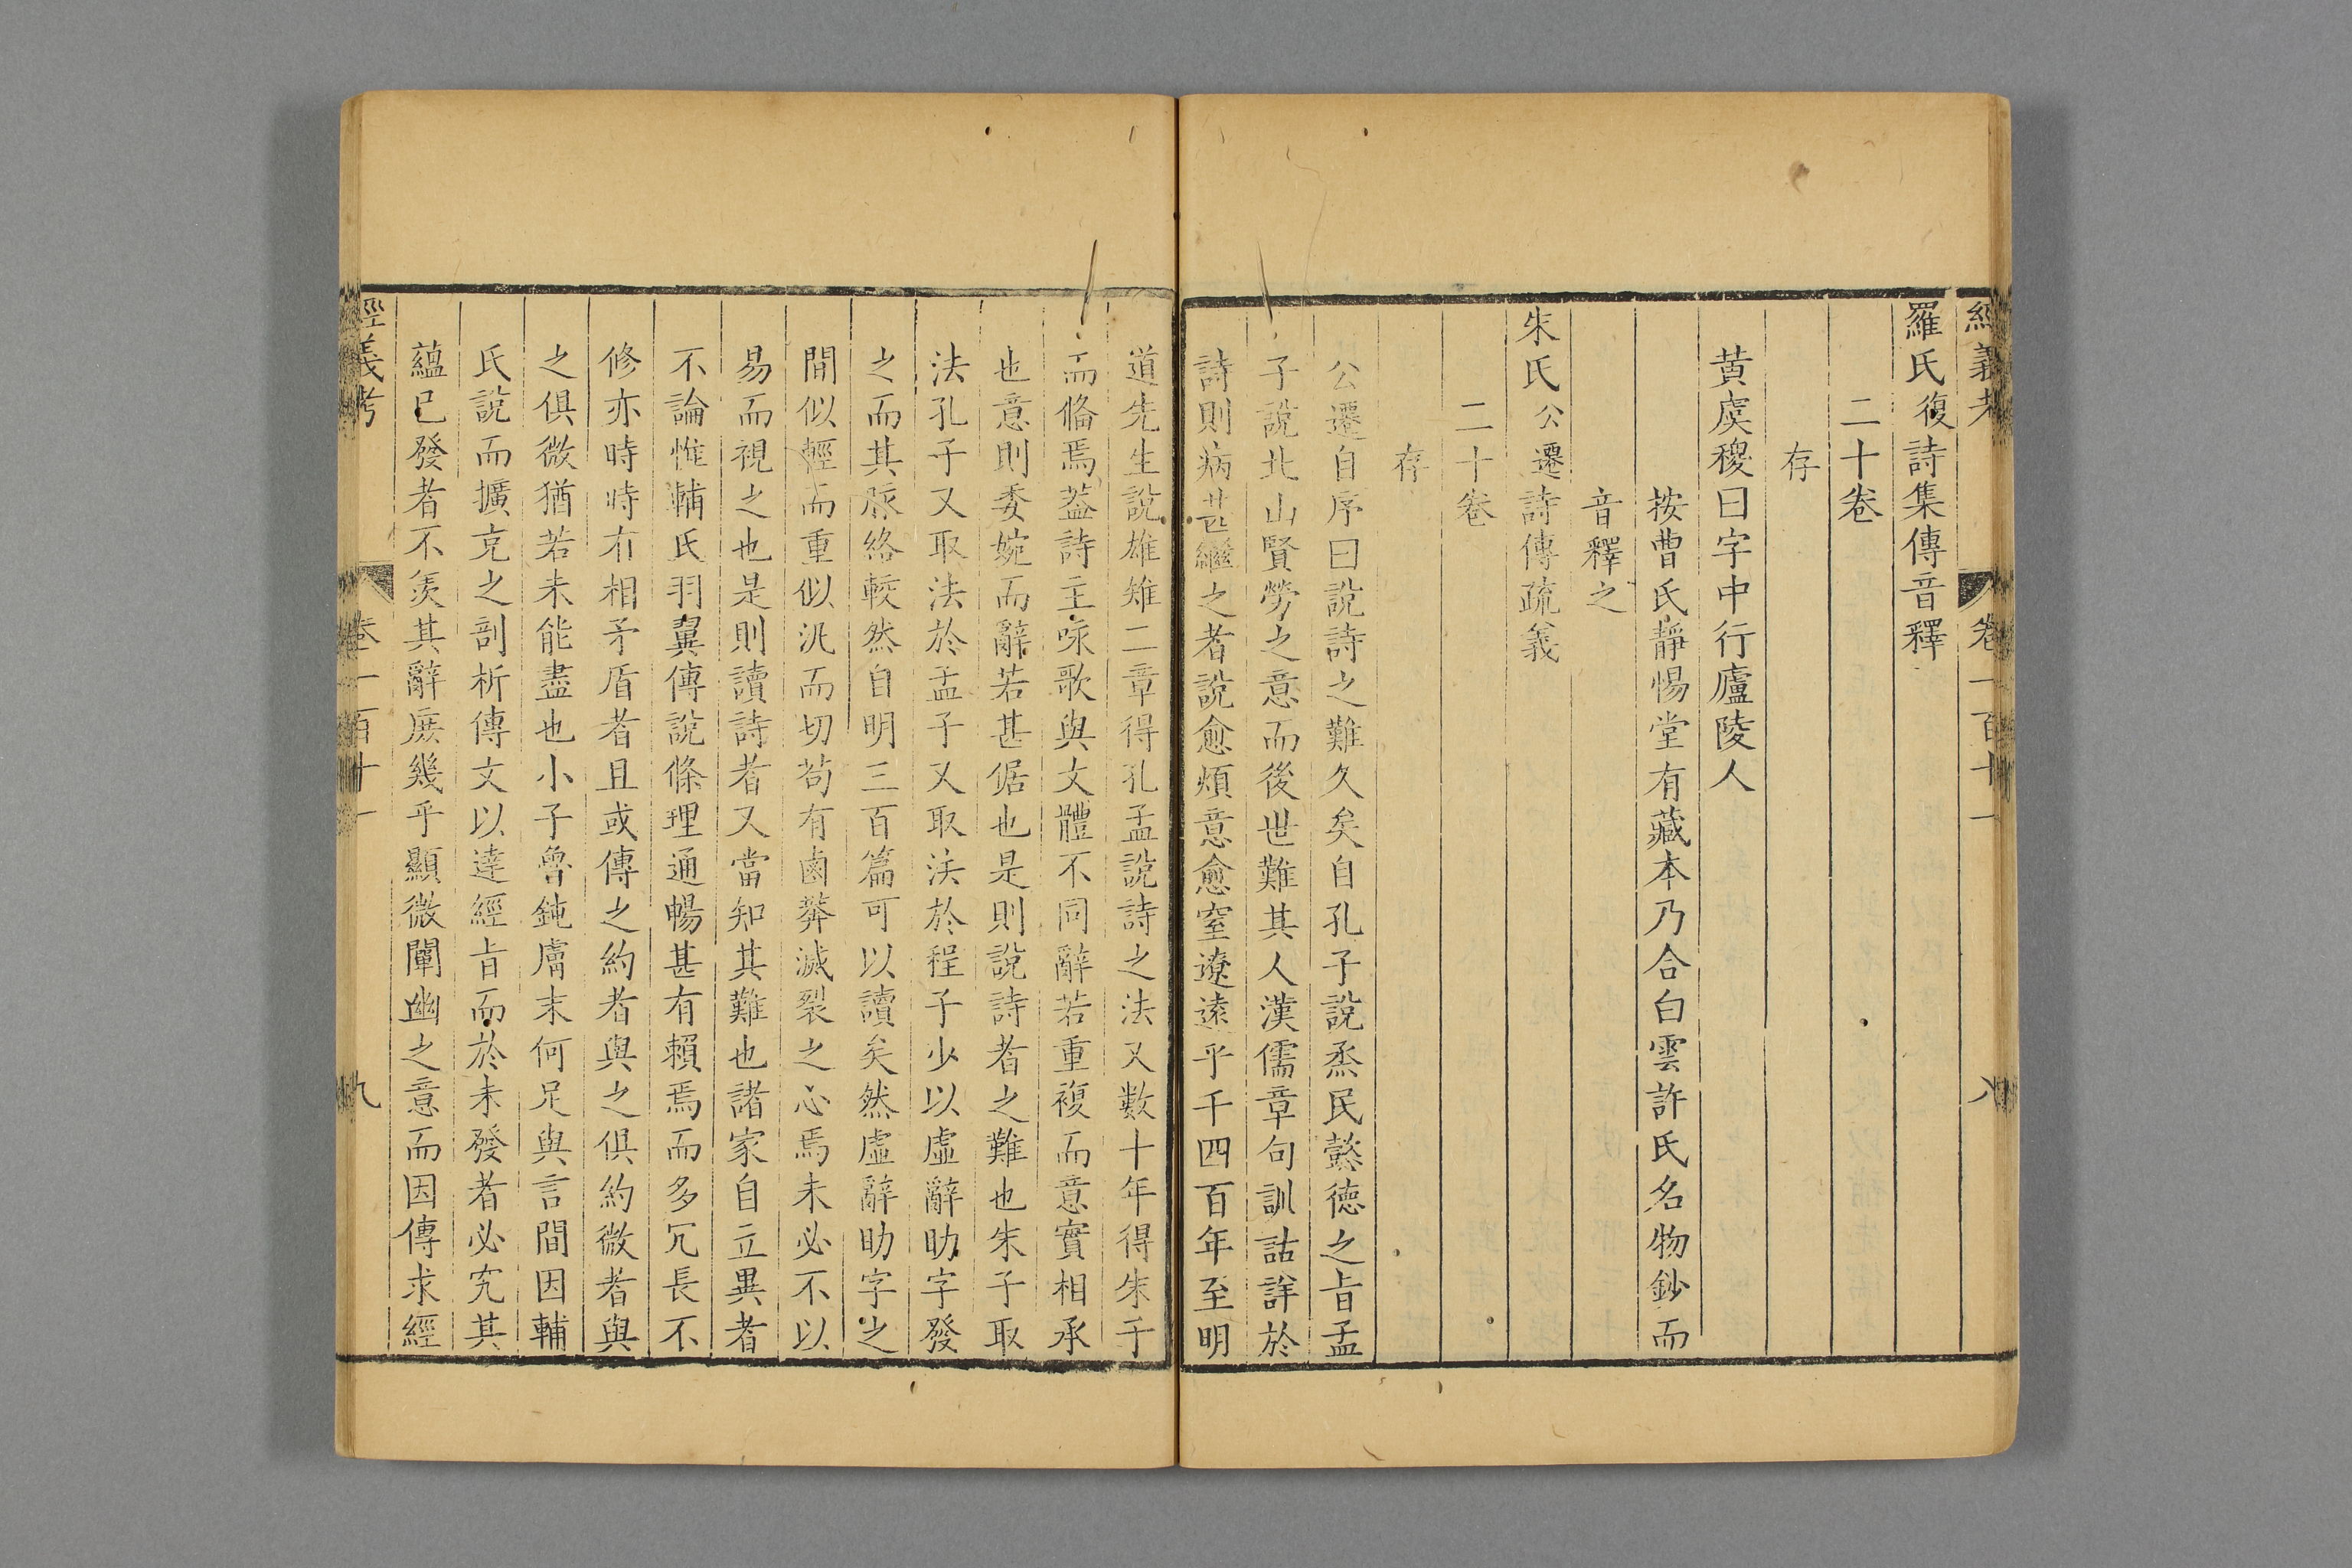 經義考 卷一百十一 八
羅氏復詩集傳音釋
二十卷
存
黃虞稷曰字中行廬陵人
按曹氏靜惕堂有藏本乃合白雲許氏名物鈔而
音釋之
朱氏公遷詩傳疏義
二十卷
存
公遷自序曰說詩之難久矣自孔子說烝民懿德之旨孟
子說北山賢勞之意而後世難其人漢儒章句訓詁詳於
詩則病甚繼之者說愈煩意愈窒遼遠乎千四百年至明
道先生說雄雉二章得孔孟說詩之法又數十年得朱子
而備焉葢詩主咏歌與文體不同辭若重複而意實相承
也意則委婉而辭若甚倨也是則說詩者之難也朱子取
法孔子又取法於孟子又取法於程子少以虛辭助字發
之而其脈絡較然自明三百篇可以讀矣然虛辭助字之
間似輕而重似汎而切苟有鹵莽滅裂之心焉未必不以
易而視之也是則讀詩者又當知其難也諸家自立異者
不論惟輔氏羽翼傳說條理通暢甚有賴焉而多冗長不
修亦時時有相矛盾者且或傳之約者與之俱約微者與
之俱微猶若未能盡也小子魯鈍膚末何足與言間因輔
氏說而擴充之剖析傳文以達經旨而於未發者必究其
蘊已發者不羨其辭庶幾乎顯微闡幽之意而因傳求經
經義考 卷一百十一 九